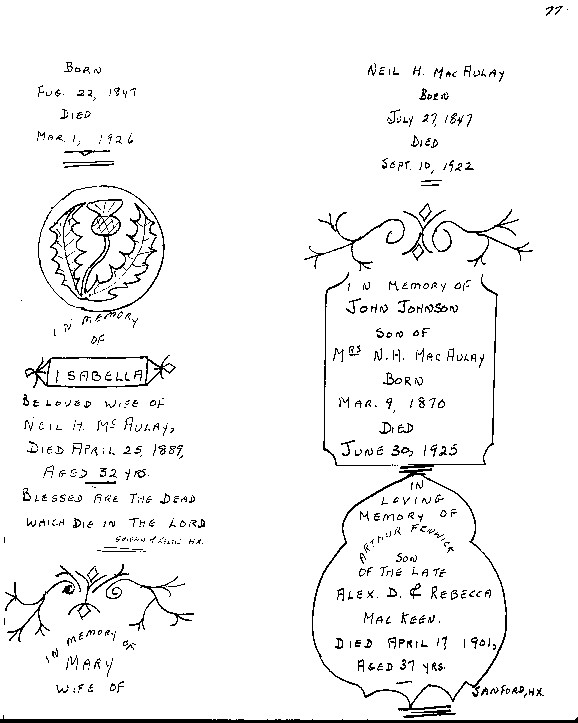 77.
BORN
AUG. 22, 1847
DIED
MAR. 1, 1926
IN MEMORY
OF
ISABELLA
BELOVED WIFE OF
NEIL H. Mc AULAY,
DIED APRIL 25, 1889,
AGED 32 YRS.
BLESSED ARE THE DEAD
WHICH DIE IN THE LORD
HX.
IN MEMORY OF
MARY
WIFE OF
NEIL H. MAC AULAY
BORN
JULY 27, 1847
DIED
SEPT. 10, 1922
IN MEMORY OF
JOHN JOHNSON
SON OF
MRS N.H. MAC AULAY
BORN
MAR. 9, 1870
DIED
JUNE 30, 1925
IN
LOVING
MEMORY OF
ARTHUR FENWICK
SON
OF THE LATE
ALEX. D. & REBECCA
MAC KEEN.
DIED APRIL 17 1901,
AGED 37 YRS.
SANFORD, HX.